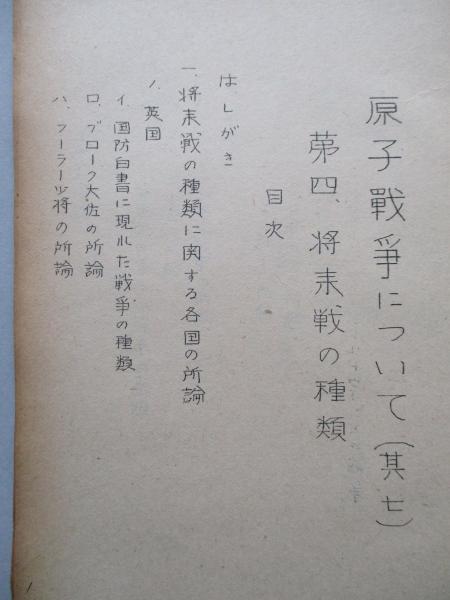 原子戰爭について(其七)
第四、将来戦の種類
目次
はしがき
一、将来戦の種類に関する各国の所論
1、英国
イ、国防白書に現れた戦争の種類
ロ、ブローク大佐の所論
ハ、フーラー少将の所論